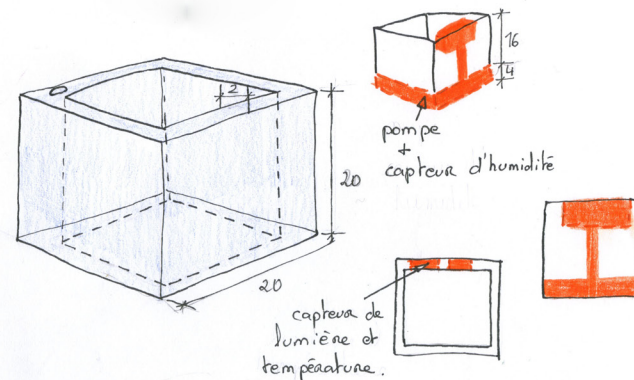 16
4
pompe
+
capteur d'humidité
2
20
20
capteur de
lumière et
température.